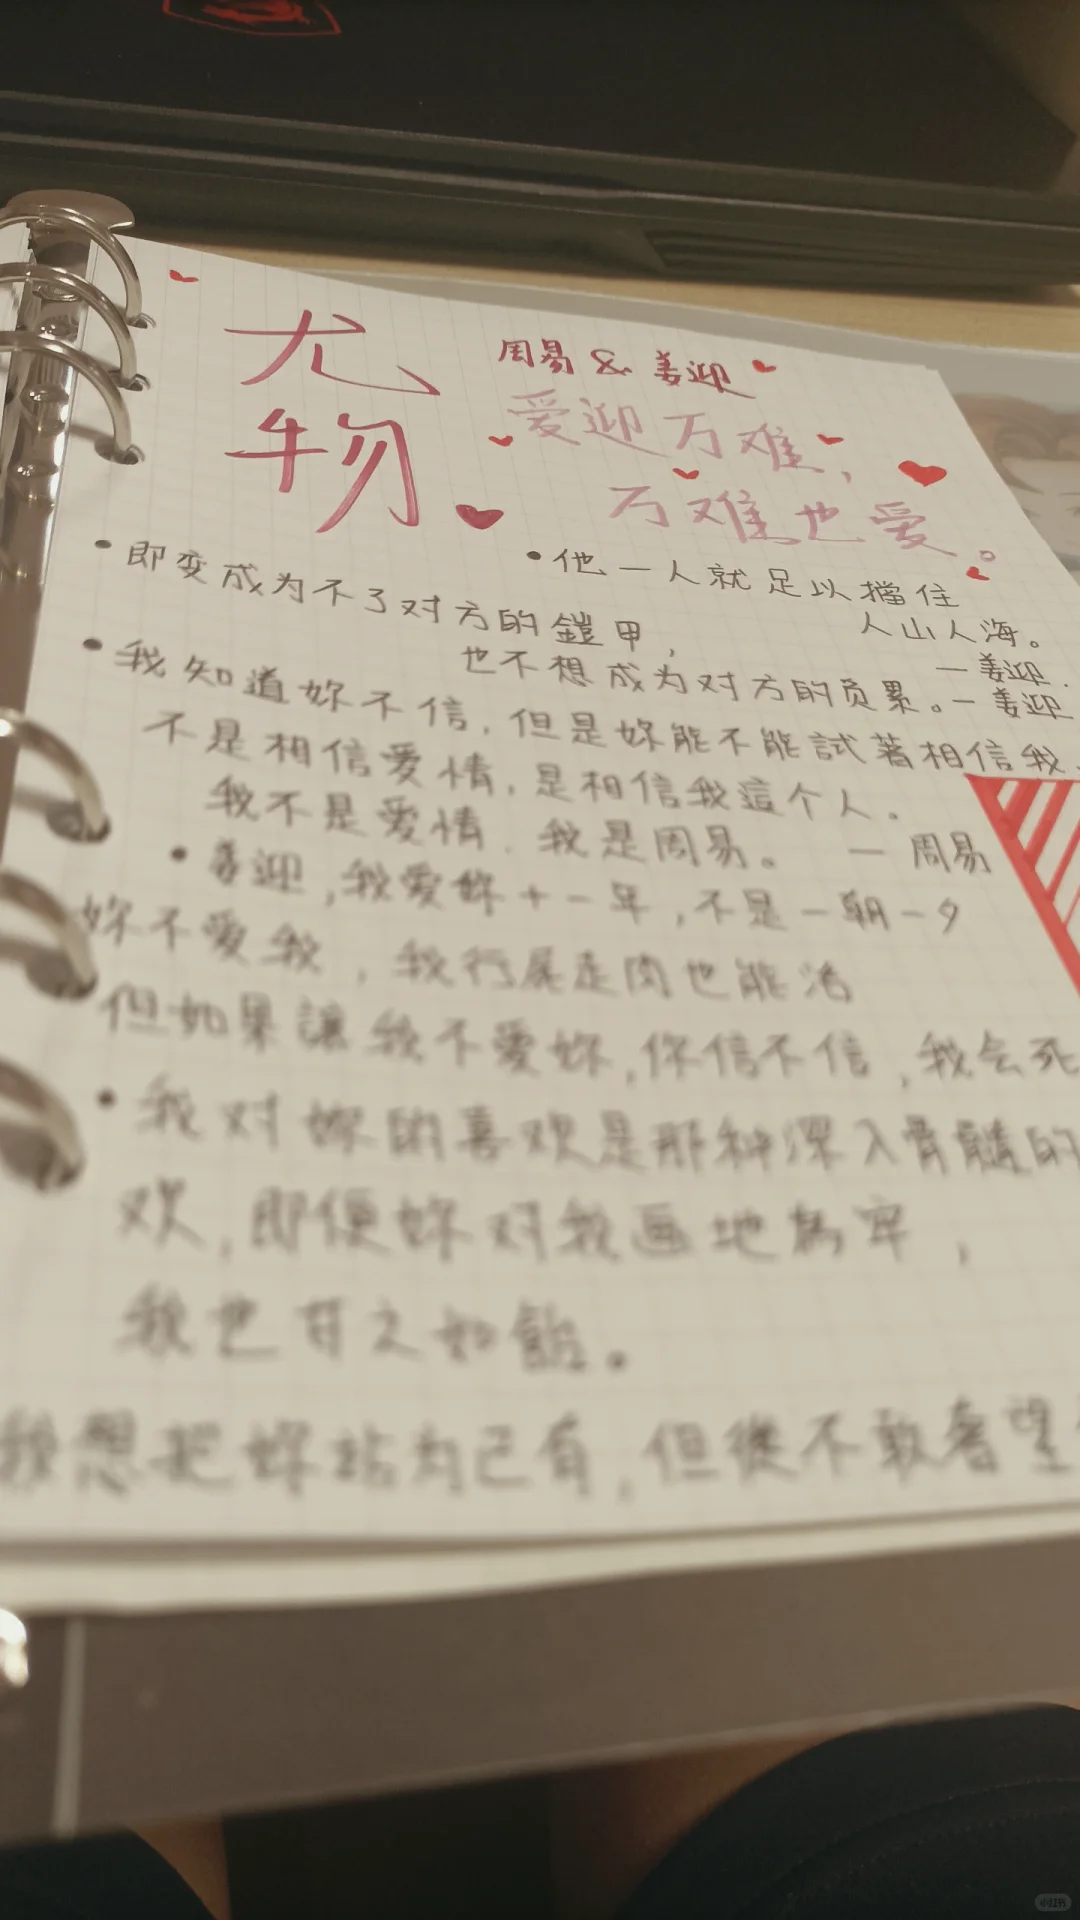 尤物
周易 & 姜迎
爱迎万难，
万难也爱。
• 他一人就足以擋住
人山人海。
—姜迎.
• 即变成为不了对方的鎧甲，
也不想成为对方的负累。—姜迎
• 我知道妳不信，但是妳能不能試著相信我.
不是相信爱情，是相信我這个人。
我不是爱情．我是周易。 — 周易
• 姜迎，我爱妳十一年，不是一朝一夕
妳不爱我，我行屍走肉也能活
但如果讓我不爱妳，你信不信，我会死
• 我对妳的喜欢是那种深入骨髓的
欢，即便妳对我画地為牢，
我也甘之如飴。
我想把妳占为己有，但從不敢奢望
小红书